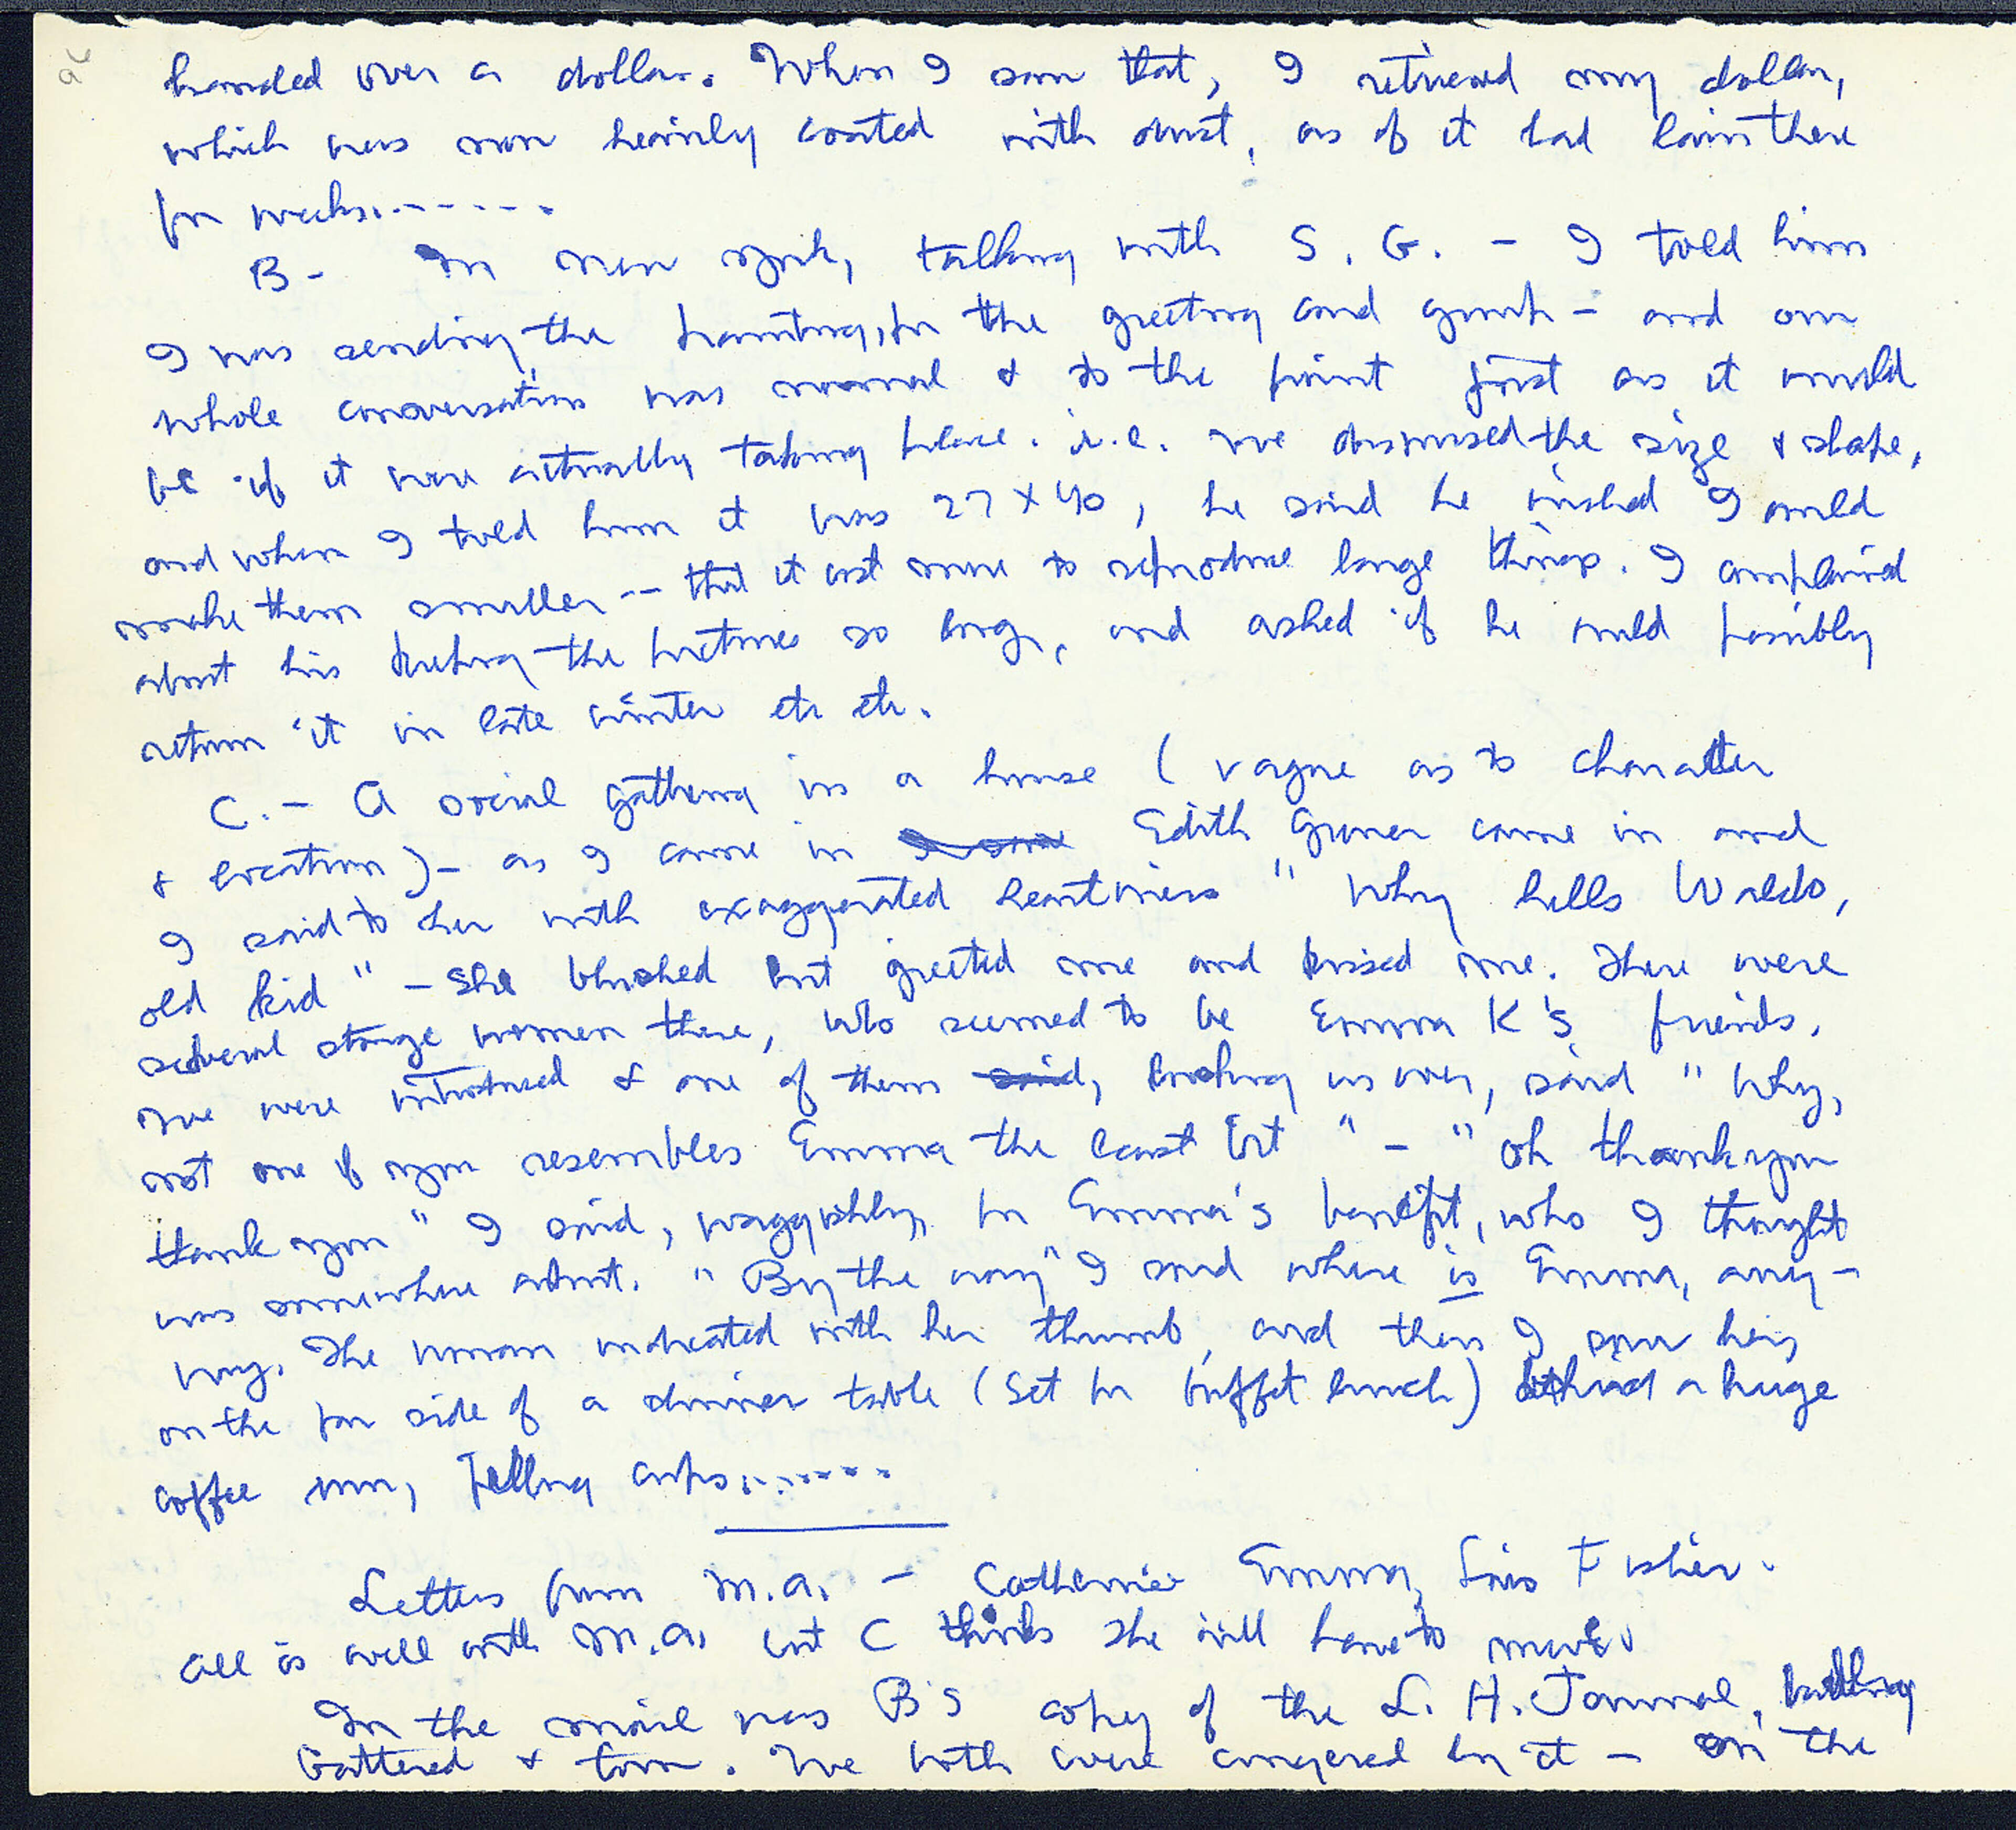 handed over a dollar. When I saw that, I retrieved my dollar,
which was now heavily coated with dust, as if it had lain there
for weeks.......
B - In New York, talking with S. G. - I told him
I was sending the painting, for the greeting card group - and our
whole conversation was normal & to the point just as it would
be if it were actually taking place. i.e. we discussed the size & shape,
and when I told him it was 27 x 40, he said he wished I could
make them smaller -- that it cost more to reproduce large things. I complained
about his keeping the pictures so long, and asked if he could possibly
return it in late winter etc etc.
C. - A social gathering in a house (vague as to character
& location) - as I came in Edith came in and
I said to her with exaggerated heartiness "Why hello Waldo,
old kid" - she blushed but greeted me and kissed me. There were
several strange women there, who seemed to be Emma K's friends.
We were introduced & one of them said, looking us over, said "Why,
not one of you resembles Emma the least bit" - "oh thank you
thank you" I said, waggishly, for Emma's benefit, who I thought
was somewhere about. "By the way" I said where is Emma, any-
way. The woman indicated with her thumb, and then I saw her,
on the far side of a dinner table (set for buffet lunch) behind a huge
coffee urn, filling cups.......
Letters from M.A. - Catherine Emma, Lois Fisher.
All is well with M.A. but C thinks she will have to move.
In the mail was B's copy of the L. H. Journal,
battered & torn. We both were angered by it - on the